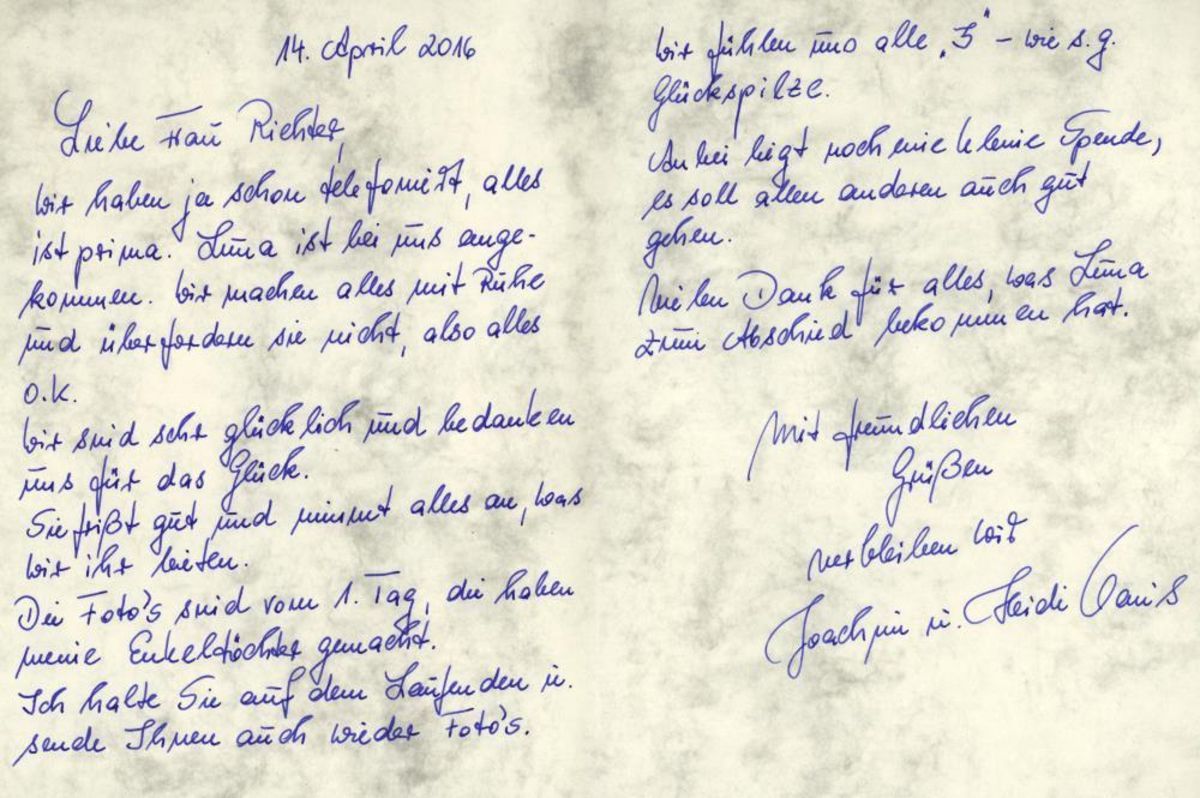 14. April 2016
Liebe Frau Richter,
wir haben ja schon telefoniert, alles
ist prima. Luna ist bei uns ange-
kommen. Wir machen alles mit Ruhe
und überfordern sie nicht, also alles
o.k.
Wir sind sehr glücklich und bedanken
uns für das Glück.
Sie frißt gut und nimmt alles an, was
wir ihr bieten.
Die Foto's sind vom 1. Tag, die haben
meine Enkeltöchter gemacht.
Ich halte Sie auf dem Laufenden u.
sende Ihnen auch wieder Foto's.
Wir fühlen uns alle „3“ – wie s.g.
Glückspilze.
Anbei liegt noch eine kleine Spende,
es soll allen anderen auch gut
gehen.
Vielen Dank für alles, was Luna
zum Abschied bekommen hat.
Mit freundlichen
Grüßen
verbleiben wir
Joachim u. Heidi